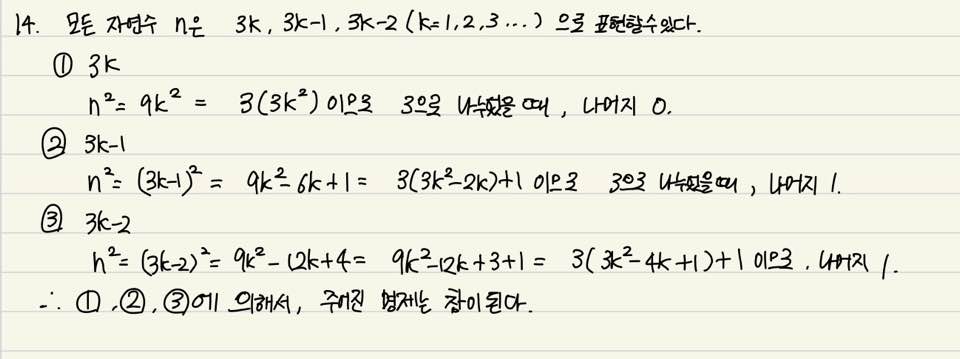 14. 모든 자연수 n은 3k, 3k-1, 3k-2 (k=1,2,3...) 으로 표현할수있다.
① 3k
n²= 9k² = 3(3k²) 이므로 3으로 나누었을 때, 나머지 0.
② 3k-1
n²= (3k-1)² = 9k²-6k+1 = 3(3k²-2k)+1 이므로 3으로 나누었을때, 나머지 1.
③ 3k-2
n²= (3k-2)² = 9k²-12k+4 = 9k²-12k+3+1 = 3(3k²-4k+1)+1 이므로. 나머지 1.
∴ ①,②,③에 의해서, 주어진 명제는 참이된다.